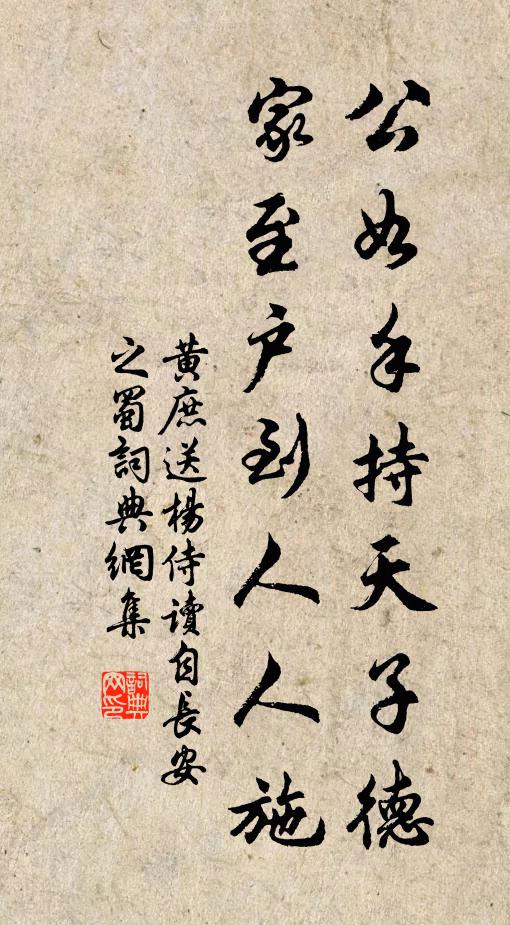 公如手持天子德
家至户到人人施
黃庶送楊侍讀自長安
之蜀詞典網集
詞典
网印